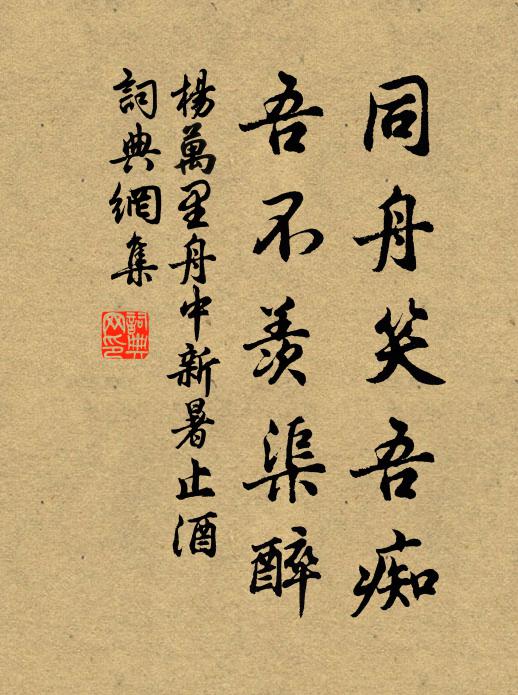 同舟笑吾痴
吾不羡渠醉
楊萬里舟中新暑止酒
詞典網集
詞典
网印